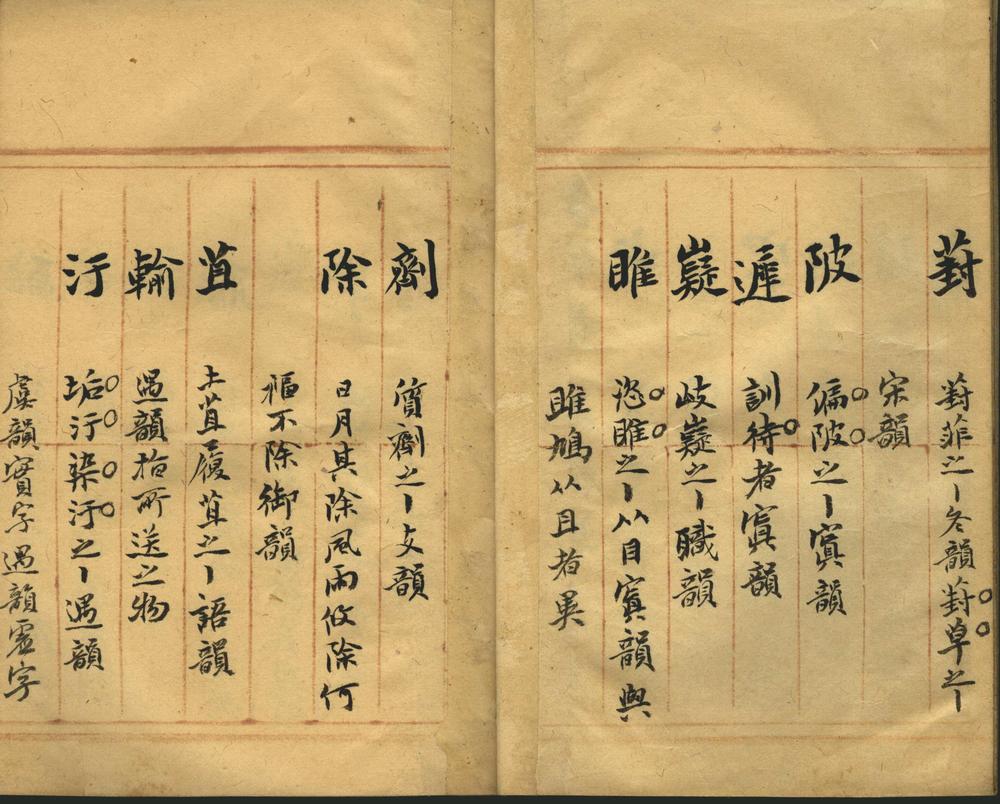 葑 葑菲之丨冬韻葑草之丨
宋韻
陂 偏陂之丨寘韻
遲 訓待者寘韻
嶷 岐嶷之丨職韻
睢 恣睢之丨从目寘韻與
雎鳩从且者異
劑 質劑之丨支韻
除 日月其除風雨攸除何
福不除御韻
苴 土苴履苴之丨語韻
輸 遇韻指所送之物
汙 垢汙染汙之丨遇韻
虞韻實字遇韻虛字